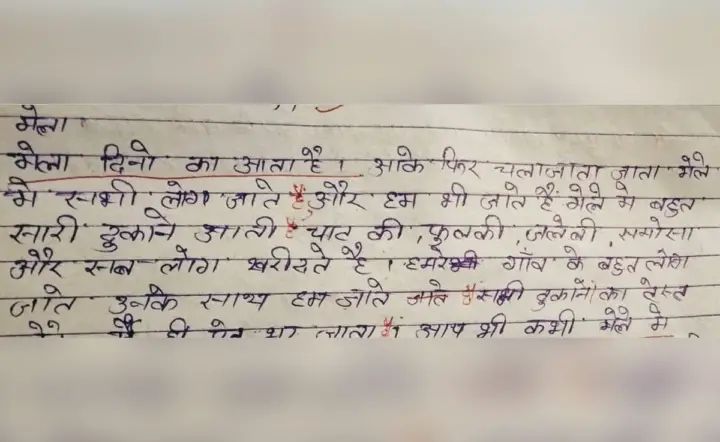 मेला
मेला दिनो का आता है। आके फिर चलाजाता जाता मेले
मे सभी लोग जाते है और हम भी जाते है मेले मे बहुत
सारी दुकाने आती है चाट की, फुलकी, जलेबी, समोसा
और सब लोग खरीदते है। हमारे गाँव के बहुत लोग
जाते उनके साथ हम जाते जाते है सभी दुकानों का टेस्ट
ही पेट भर जाता है। आप भी कभी मेले मे